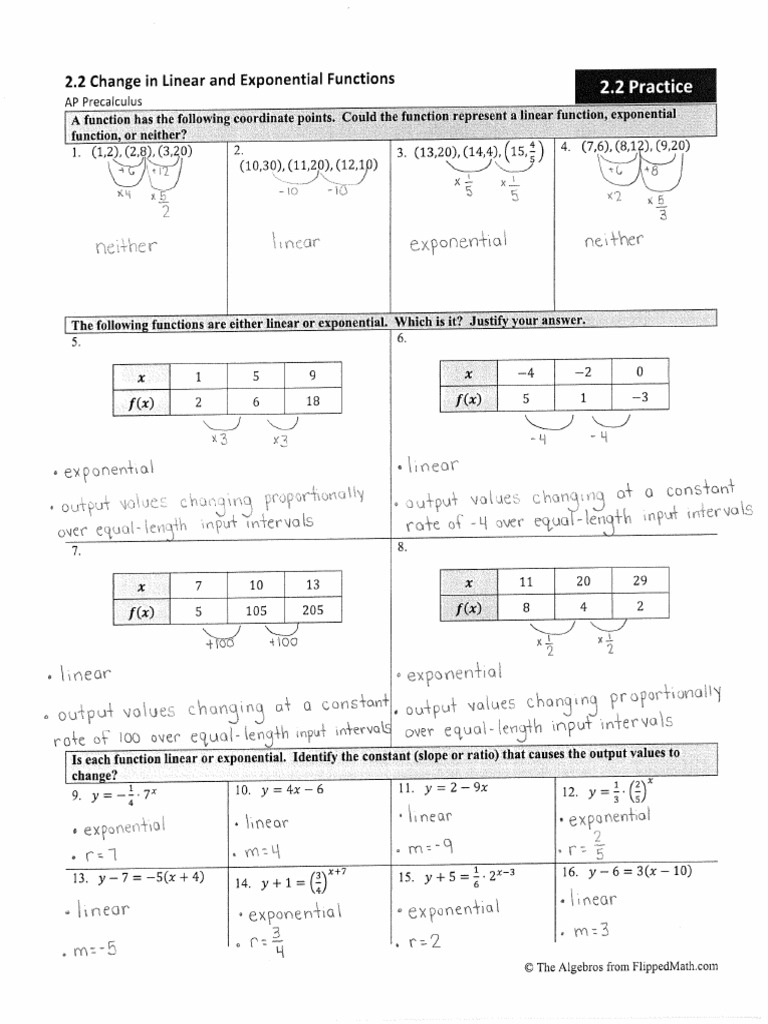 2.2 Change in Linear and Exponential Functions
2.2 Practice
AP Precalculus
A function has the following coordinate points. Could the function represent a linear function, exponential
function, or neither?
1. (1,2), (2,8), (3,20)
+6 +12
×4 ×5/2
neither
2.
(10,30), (11,20), (12,10)
-10 -10
linear
3. (13,20), (14,4), (15, 4/5)
×1/5 ×1/5
exponential
4. (7,6), (8,12), (9,20)
+6 +8
×2 ×5/3
neither
The following functions are either linear or exponential. Which is it? Justify your answer.
5.
x 1 5 9
f(x) 2 6 18
×3 ×3
• exponential
• output values changing proportionally
over equal-length input intervals
6.
x −4 −2 0
f(x) 5 1 −3
-4 -4
• linear
• output values changing at a constant
rate of -4 over equal-length input intervals
7.
x 7 10 13
f(x) 5 105 205
+100 +100
• linear
• output values changing at a constant
rate of 100 over equal-length input intervals
8.
x 11 20 29
f(x) 8 4 2
×1/2 ×1/2
• exponential
• output values changing proportionally
over equal-length input intervals
Is each function linear or exponential. Identify the constant (slope or ratio) that causes the output values to
change?
9. y = −1/4 · 7^x
• exponential
• r=7
10. y = 4x − 6
• linear
• m=4
11. y = 2 − 9x
• linear
• m=-9
12. y = 1/3 · (2/5)^x
• exponential
• r= 2/5
13. y − 7 = −5(x + 4)
• linear
• m=-5
14. y + 1 = (3/4)^(x+7)
• exponential
• r= 3/4
15. y + 5 = 1/6 · 2^(x−3)
• exponential
• r=2
16. y − 6 = 3(x − 10)
• linear
• m=3
© The Algebros from FlippedMath.com